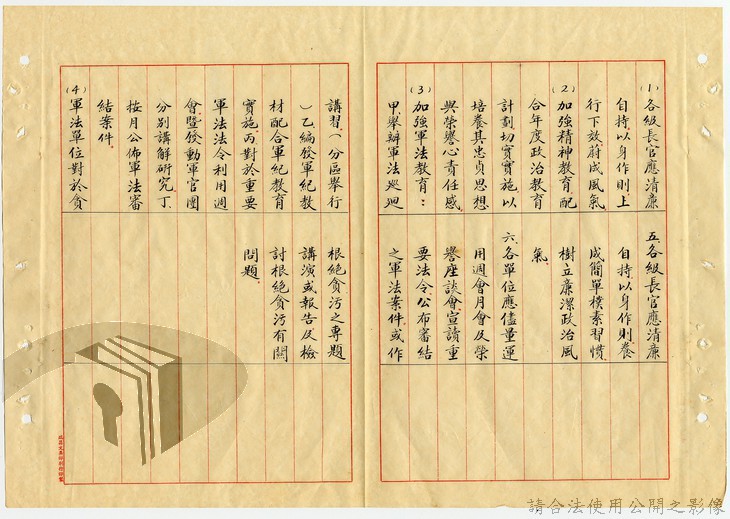 (1)各級長官應清廉
自持以身作則上
行下效蔚成風氣
(2)加強精神教育配
合年度政治教育
計劃切實實施以
培養其忠貞思想
與榮譽心責任感
(3)加強軍法教育：
甲、舉辦軍法巡迴
講習、(分區舉行
)乙、編發軍紀教
材配合軍紀教育
實施、丙、對於重要
軍法法令利用週
會暨發動軍官團
分別講解研究、丁、
按月公佈軍法審
結案件。
(4)軍法單位對於貪
五、各級長官應清廉
自持以身作則養
成簡單樸素習慣
樹立廉潔政治風
氣
六、各單位應儘量運
用週會月會及榮
譽座談會宣讀重
要法令、公布審結
之軍法案件、或作
根絕貪污之專題
講演或報告及檢
討根絕貪污有關
問題。
請合法使用公開之影像